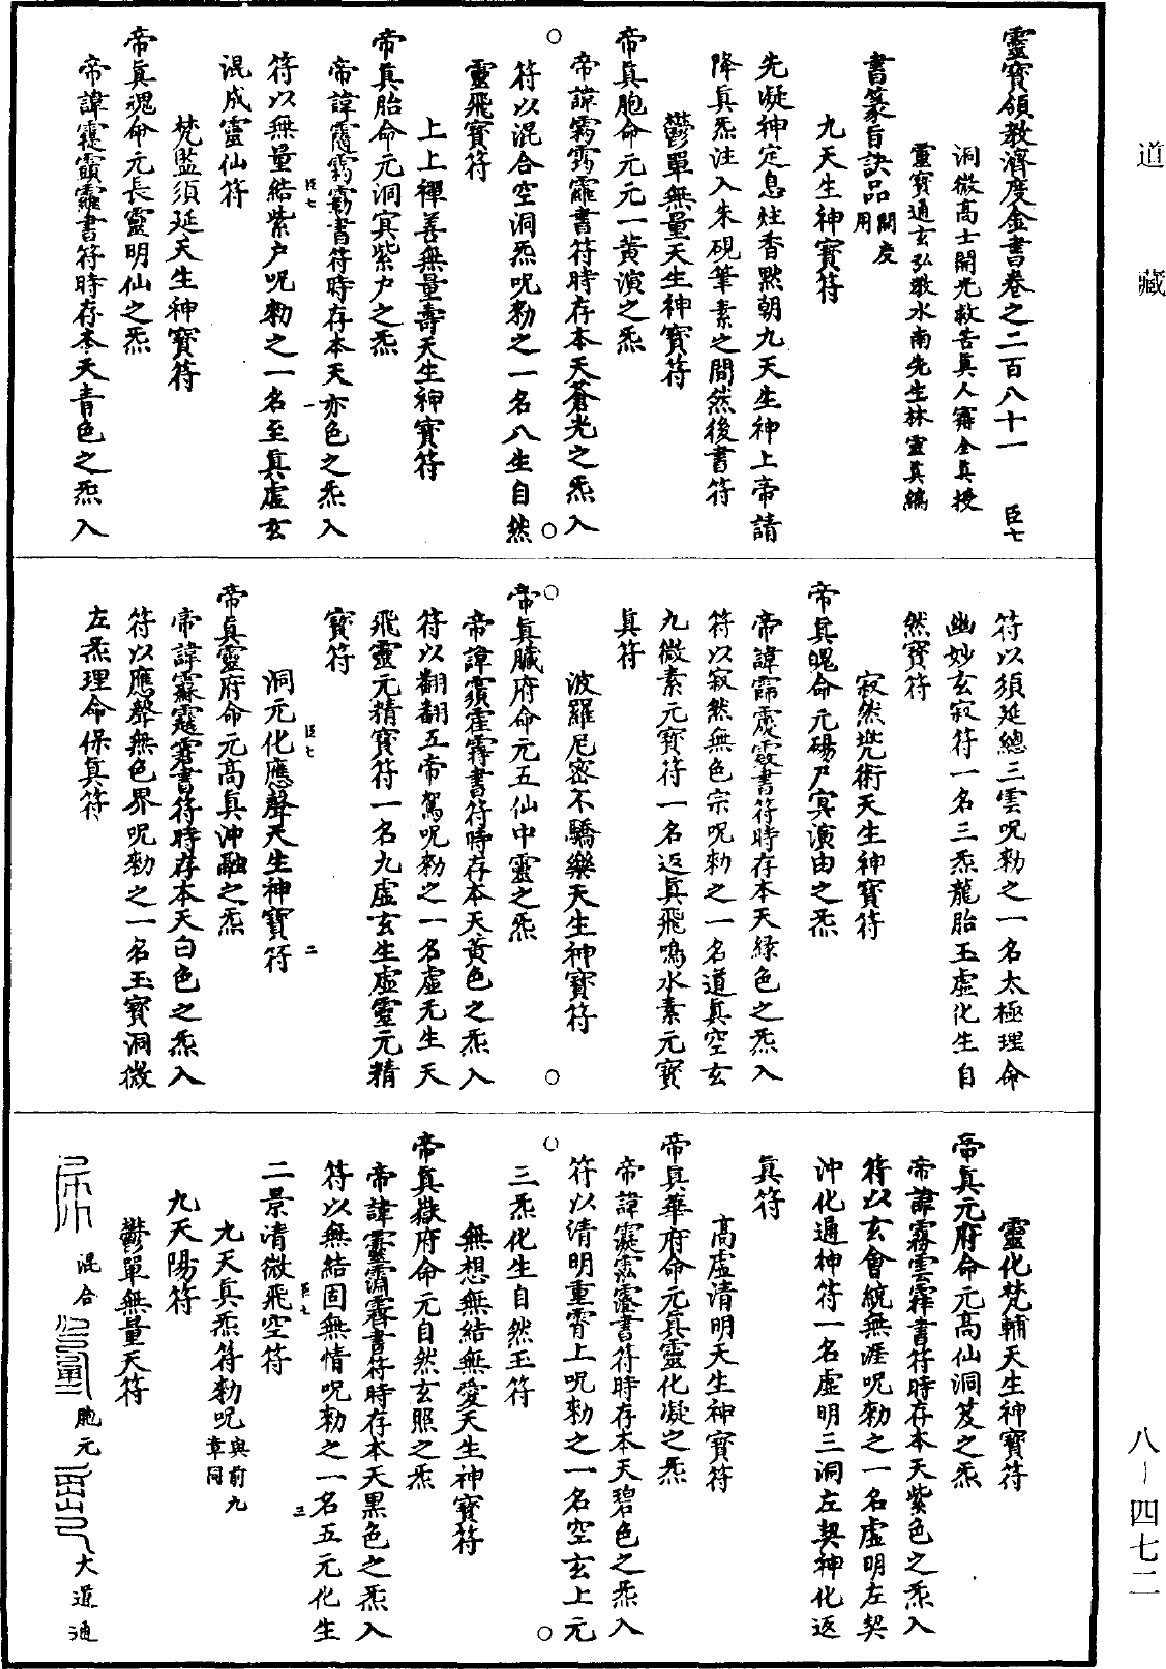 道藏
靈寶領教濟度金書卷之二百八十一　臣七
洞微高士開光救苦真人甯全真授
靈寶通玄弘教水南先生林靈真編
書篆旨訣品開度用
九天生神寶符
先凝神定息炷香默朝九天生神上帝請
降真炁注入朱硯筆素之間然後書符
鬱單無量天生神寶符
帝真胞命元元一黃演之炁
帝諱書符時存本天蒼光之炁入
符以混合空洞炁呪勑之一名八生自然
靈飛寶符
上上禪善無量壽天生神寶符
帝真胎命元洞冥紫戶之炁
帝諱書符時存本天赤色之炁入
符以無量結紫戶呪勑之一名至真虛玄
混成靈仙符
梵監須延天生神寶符
帝真魂命元長靈明仙之炁
帝諱書符時存本天青色之炁入
符以須延總三雲呪勑之一名太極理命
幽妙玄寂符一名三炁龍胎玉虛化生自
然寶符
寂然兠術天生神寶符
帝真魄命元碭尸冥演由之炁
帝諱書符時存本天綠色之炁入
符以寂然無色宗呪勑之一名道真空玄
九微素元寶符一名返真飛鳴水素元寶
真符
波羅尼密不驕樂天生神寶符
帝真臟府命元五仙中靈之炁
帝諱書符時存本天黃色之炁入
符以翻翻五帝駕呪勑之一名虛无生天
飛靈元精寶符一名九虛玄生虛靈元精
寶符
洞元化應聲天生神寶符
帝真靈府命元高真沖融之炁
帝諱書符時存本天白色之炁入
符以應聲無色界呪勑之一名玉寶洞微
左炁理命保真符
靈化梵輔天生神寶符
帝真元府命元高仙洞笈之炁
帝諱書符時存本天紫色之炁入
符以玄會統無涯呪勑之一名虛明左契
沖化通神符一名虛明三洞左契神化返
真符
高虛清明天生神寶符
帝真華府命元真靈化凝之炁
帝諱書符時存本天碧色之炁入
符以清明重霄上呪勑之一名空玄上元
三炁化生自然玉符
無想無結無愛天生神寶符
帝真嶽府命元自然玄照之炁
帝諱書符時存本天黑色之炁入
符以無結固無情呪勑之一名五元化生
二景清微飛空符
九天真炁符勑呪與前九章同
九天陽符
鬱單無量天符
混合　胞元　大道通
八－四七二